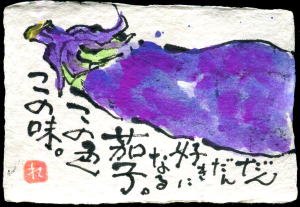 だん
だん
好きに
なる
茄子。
この色
この味。